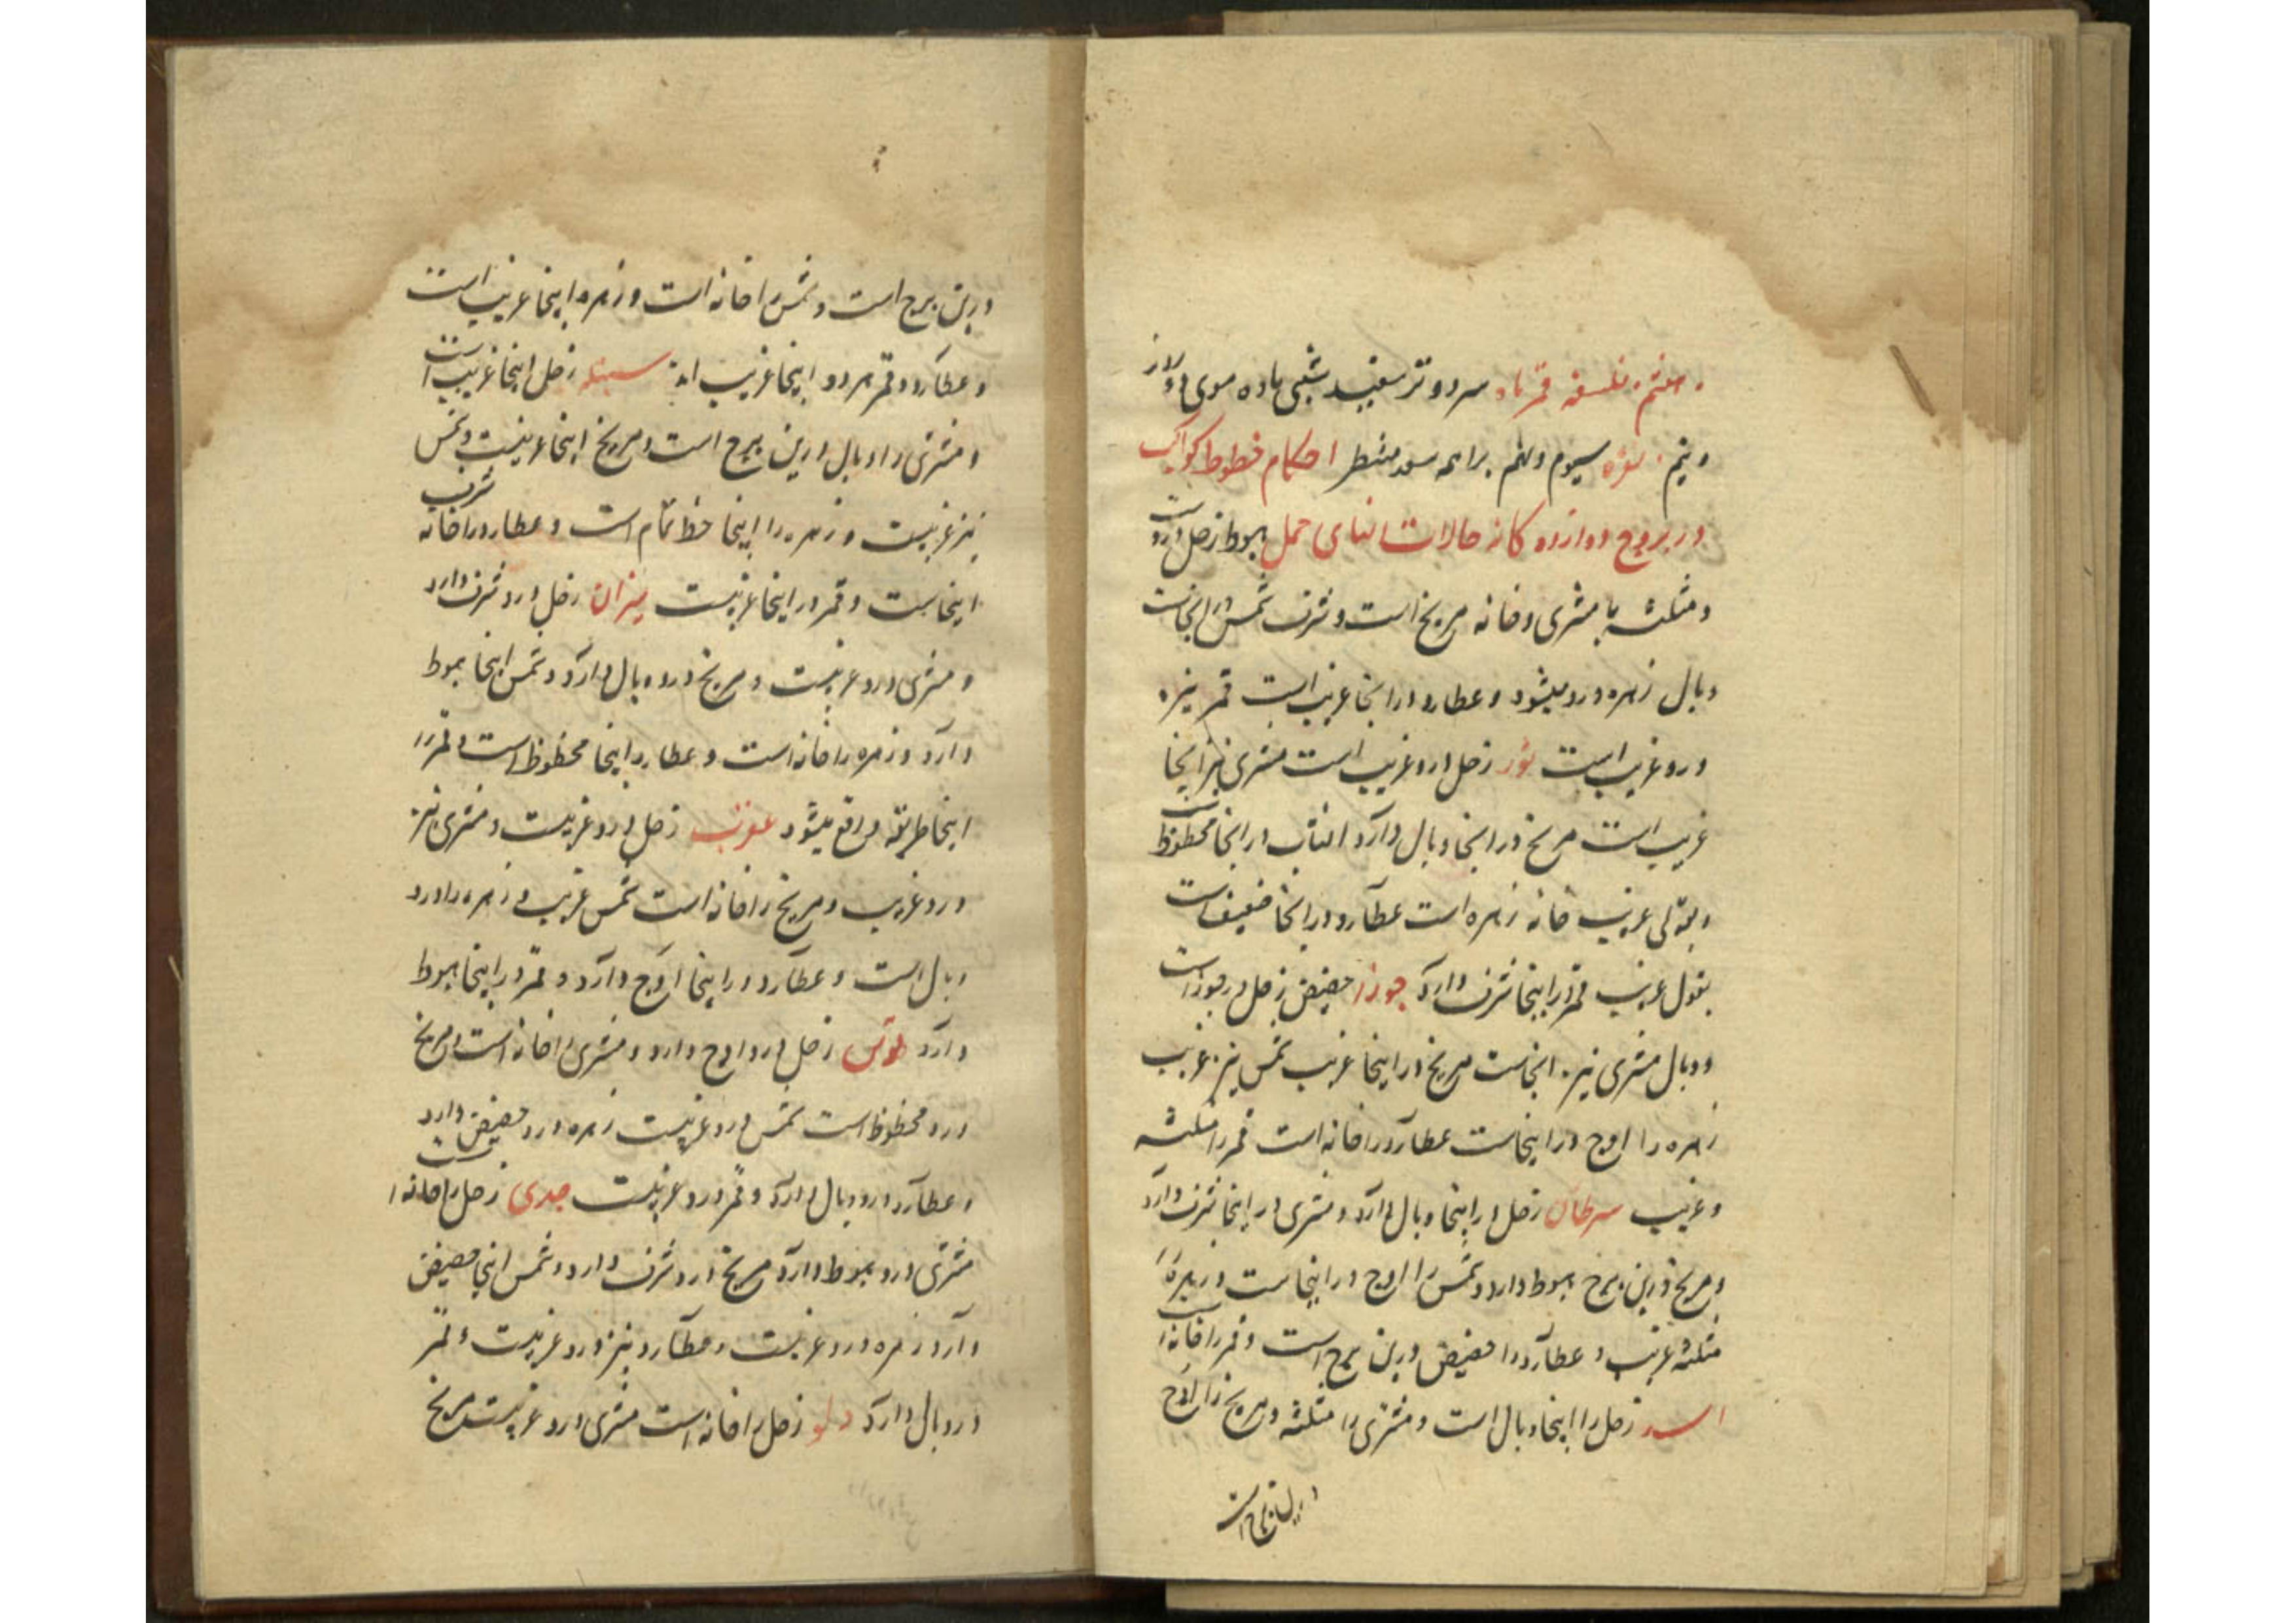 سرد و تر سفید شبی ماده
سیوم و نهم احکام خطوط کواکب
در بروج دوازده کانه حالات حمل هبوط زحل درو است
و مثلثه با مشتری و خانه مریخ است و شرف شمس در اینجاست
وبال زهره درو میشود و عطارد در اینجا غریب است قمر نیز
درو غریب است ثور زحل درو غریب است مشتری نیز اینجا
غریب است مریخ در اینجا وبال دارد افتاب در اینجا محظوظ است
و بقولی غریب خانه زهره است عطارد در اینجا ضعیف است
بقول غریب قمر در اینجا شرف دارد جوزا حضیض زحل در جوزاست
و وبال مشتری نیز اینجاست مریخ در اینجا غریب شمس نیز غریب
زهره را اوج در اینجاست عطارد را خانه است قمر را مثلثه
و غریب سرطان زحل در اینجا وبال دارد و مشتری در اینجا شرف دارد
و مریخ درین برج هبوط دارد و شمس را اوج در اینجاست و زهره را
مثلثه غریب و عطارد را حضیض درین برج است و قمر را خانه است
اسد زحل را اینجا وبال است و مشتری را مثلثه و مریخ را اوج
درین برج است
درین برج است و شمس را خانه است و زهره اینجا غریب است
و عطارد و قمر هر دو اینجا غریب اند سنبله زحل اینجا غریب است
و مشتری را وبال درین برج است و مریخ اینجا غریبست و شمس
نیز غریبست و زهره را اینجا حظ تمام است و عطارد را خانه شرف
اینجاست و قمر در اینجا غریبست میزان زحل درو شرف دارد
و مشتری درو غریبست و مریخ درو وبال دارد و شمس اینجا هبوط
دارد و زهره را خانه است و عطارد اینجا محظوظ است و قمر را
اینجا طریقه واقع میشود عقرب زحل درو غریبست و مشتری نیز
درو غریب و مریخ را خانه است شمس غریب و زهره را درو
وبال است و عطارد در اینجا اوج دارد و قمر در اینجا هبوط
دارد قوس زحل درو اوج دارد و مشتری را خانه است و مریخ
درو محظوظ است شمس درو غریبست زهره درو حضیض دارد
و عطارد درو وبال دارد و قمر درو غریبست جدی زحل را خانه است
مشتری درو هبوط دارد مریخ درو شرف دارد و شمس اینجا حضیض
دارد زهره درو غریبست و عطارد نیز درو غریبست و قمر
درو وبال دارد دلو زحل را خانه است مشتری درو غریبست مریخ